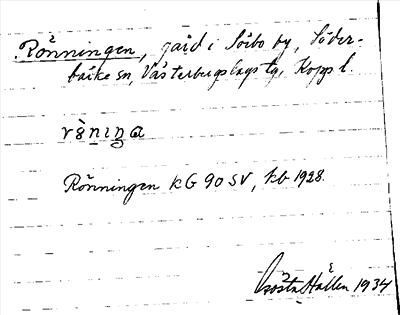 Rönningen, gård i Sörbo by, Söder-
bärke sn, Västerbergslags tg, Kopp l.
Rönningen KG 90 SV, kb 1928.
Gösta Hållén 1934